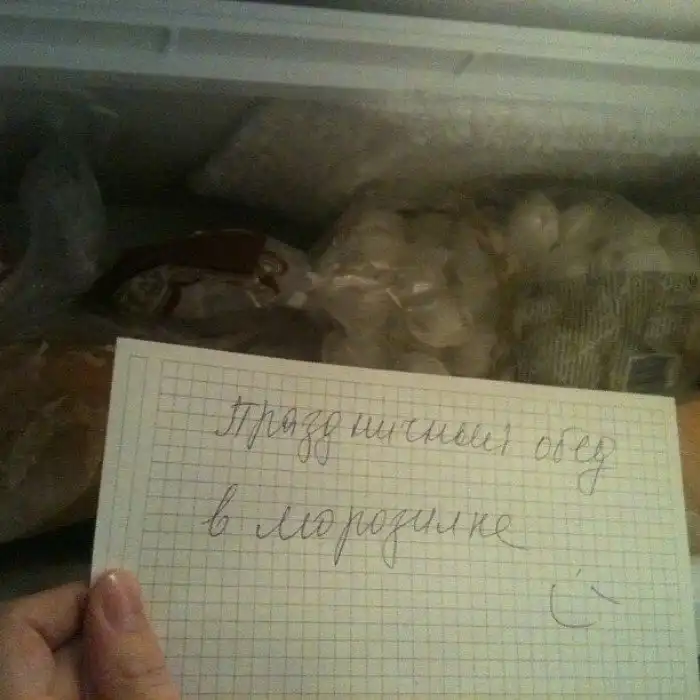 Праздничный обед
в морозилке